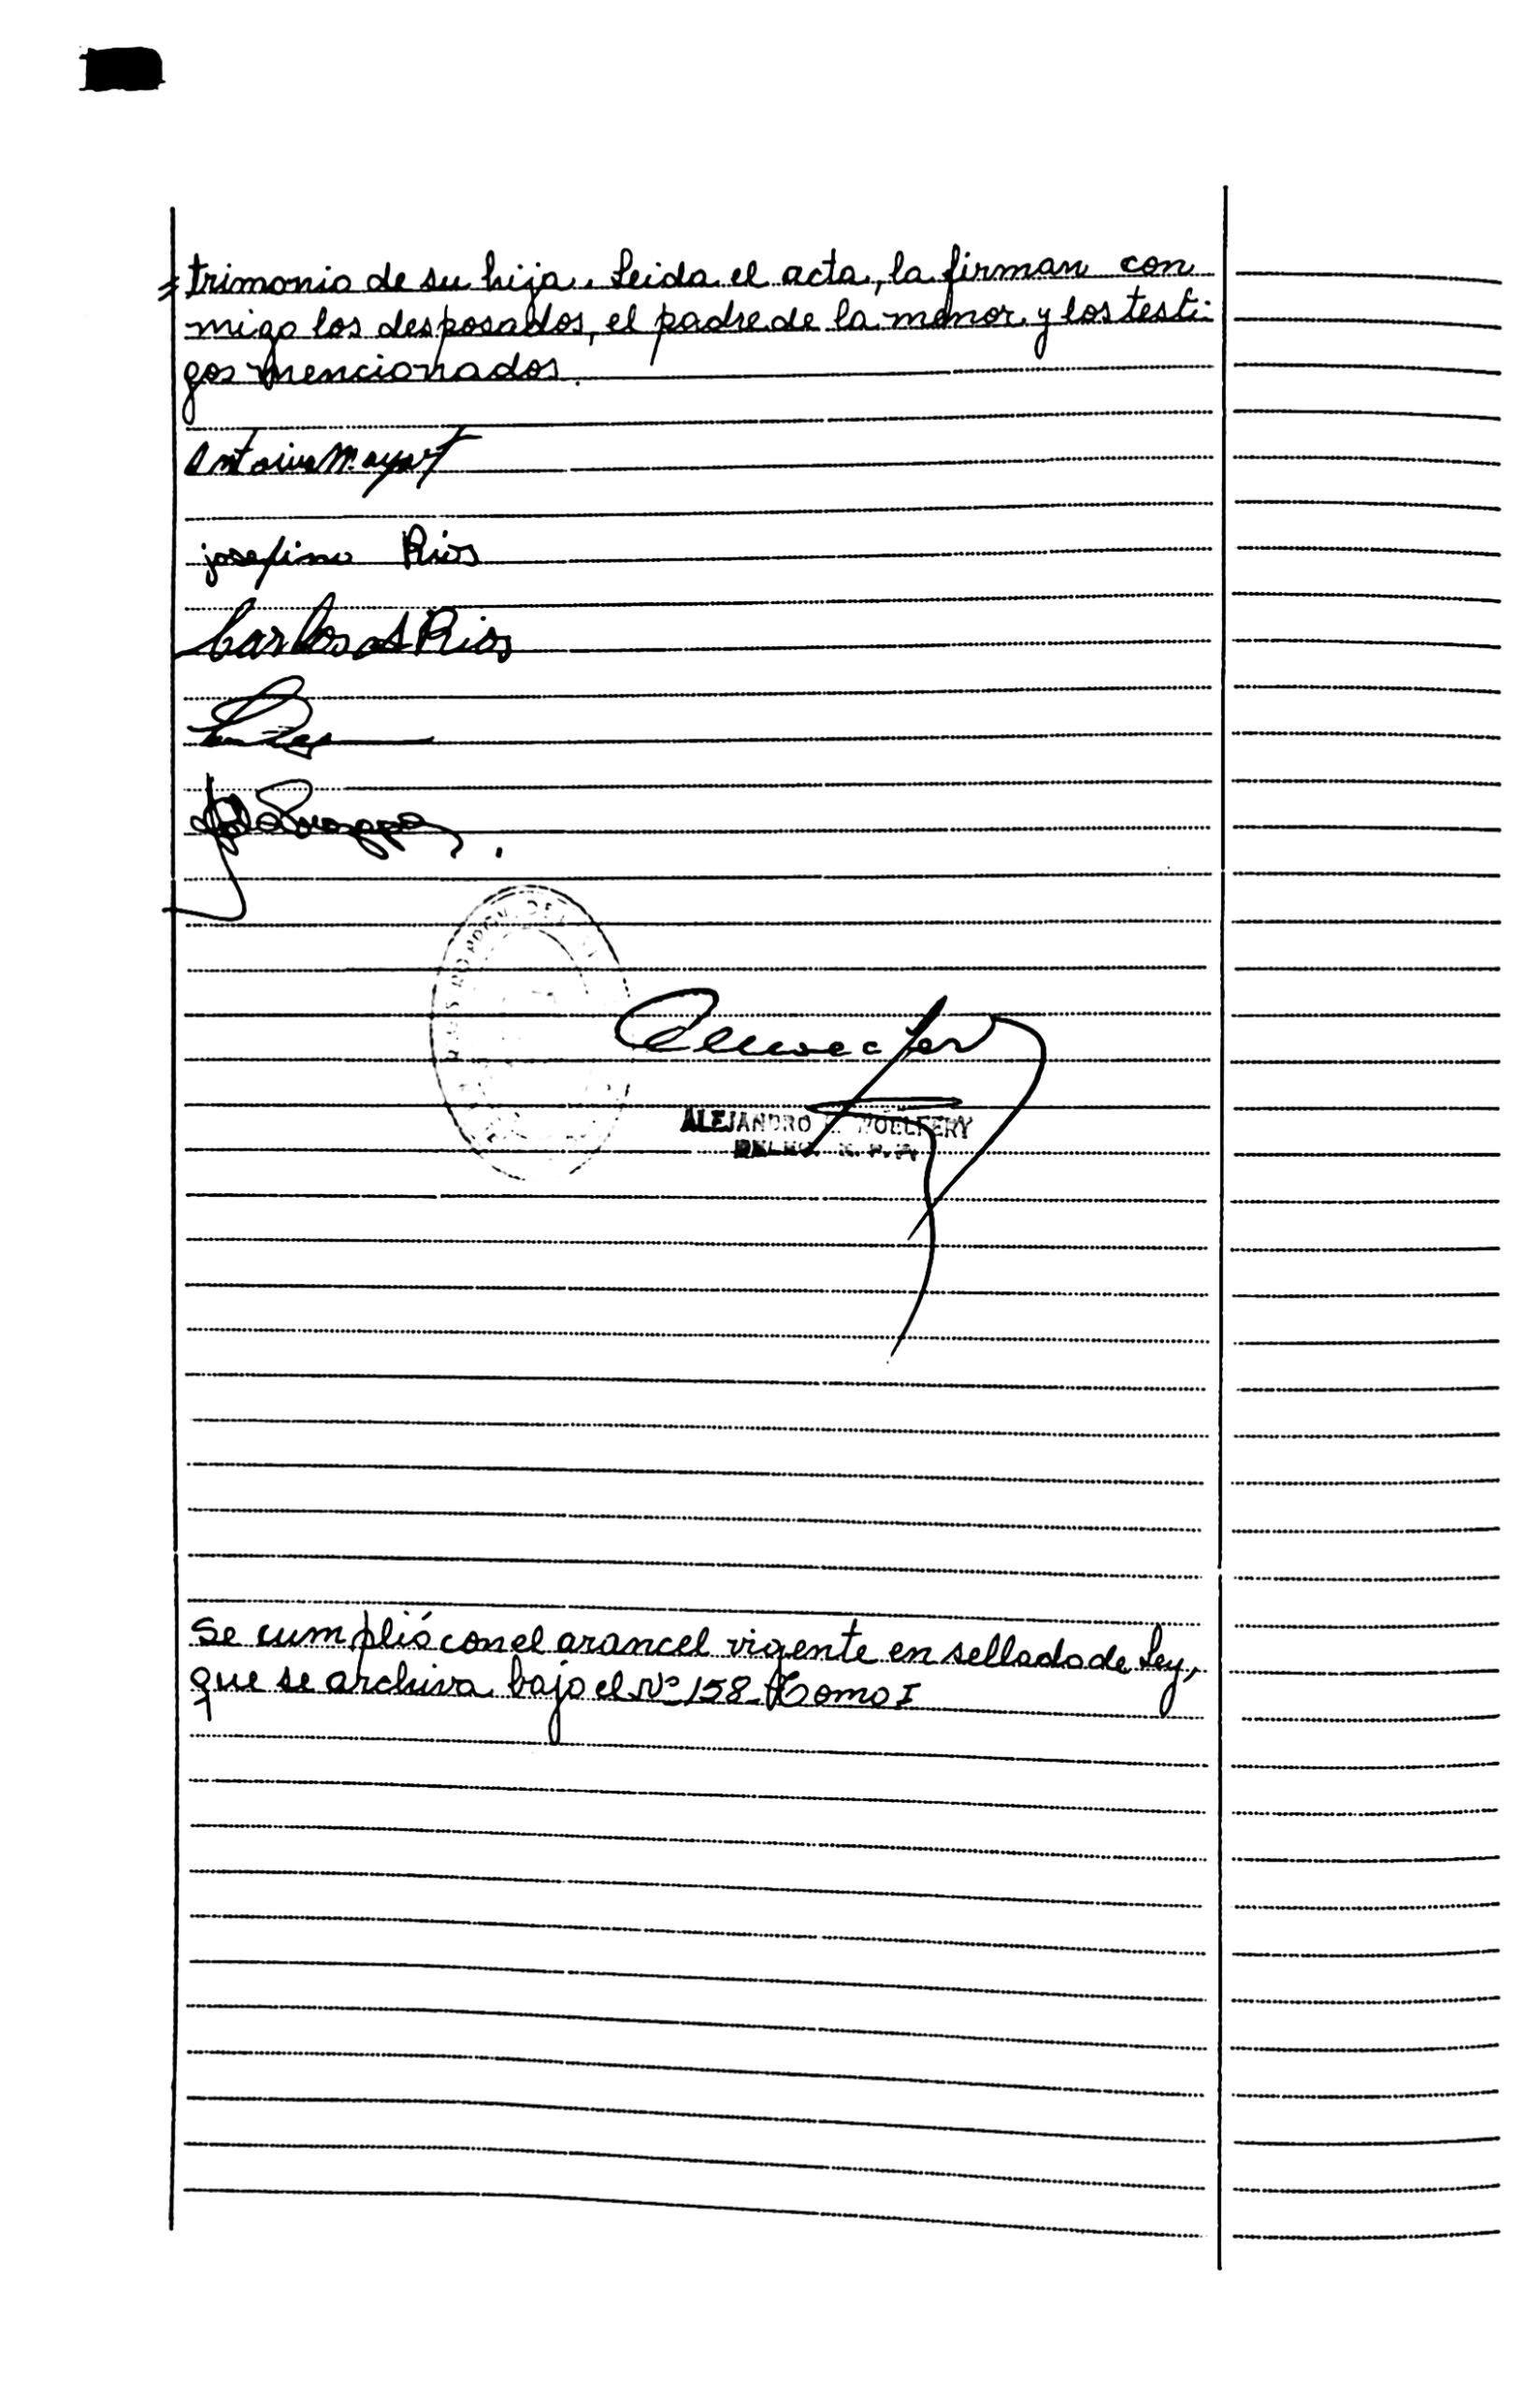 =trimonio de su hija. Leida el acta, la firman con
migo los desposados, el padre de la menor y los testi-
gos mencionados.
Antonio Mayart
josefina Rios
Carlos A Rios
ALEJANDRO WOELFERY
Se cumplió con el arancel vigente en sellado de Ley,
que se archiva bajo el Nº 158 Tomo I